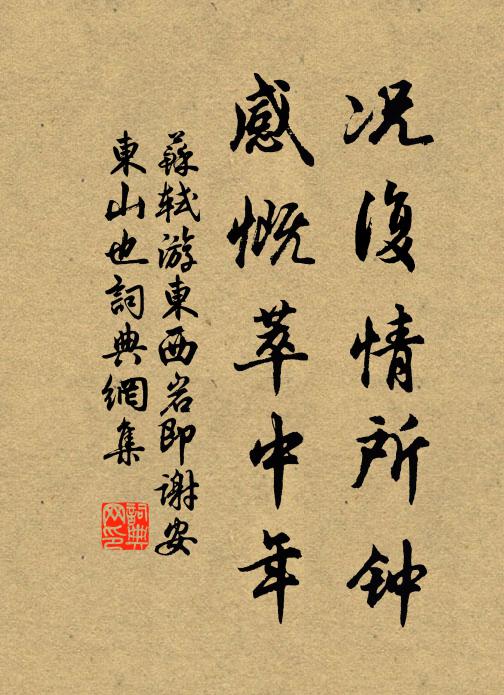 况復情所钟
感慨萃中年
蘇轼游東西岩即謝安
東山也詞典網集
詞典
网印